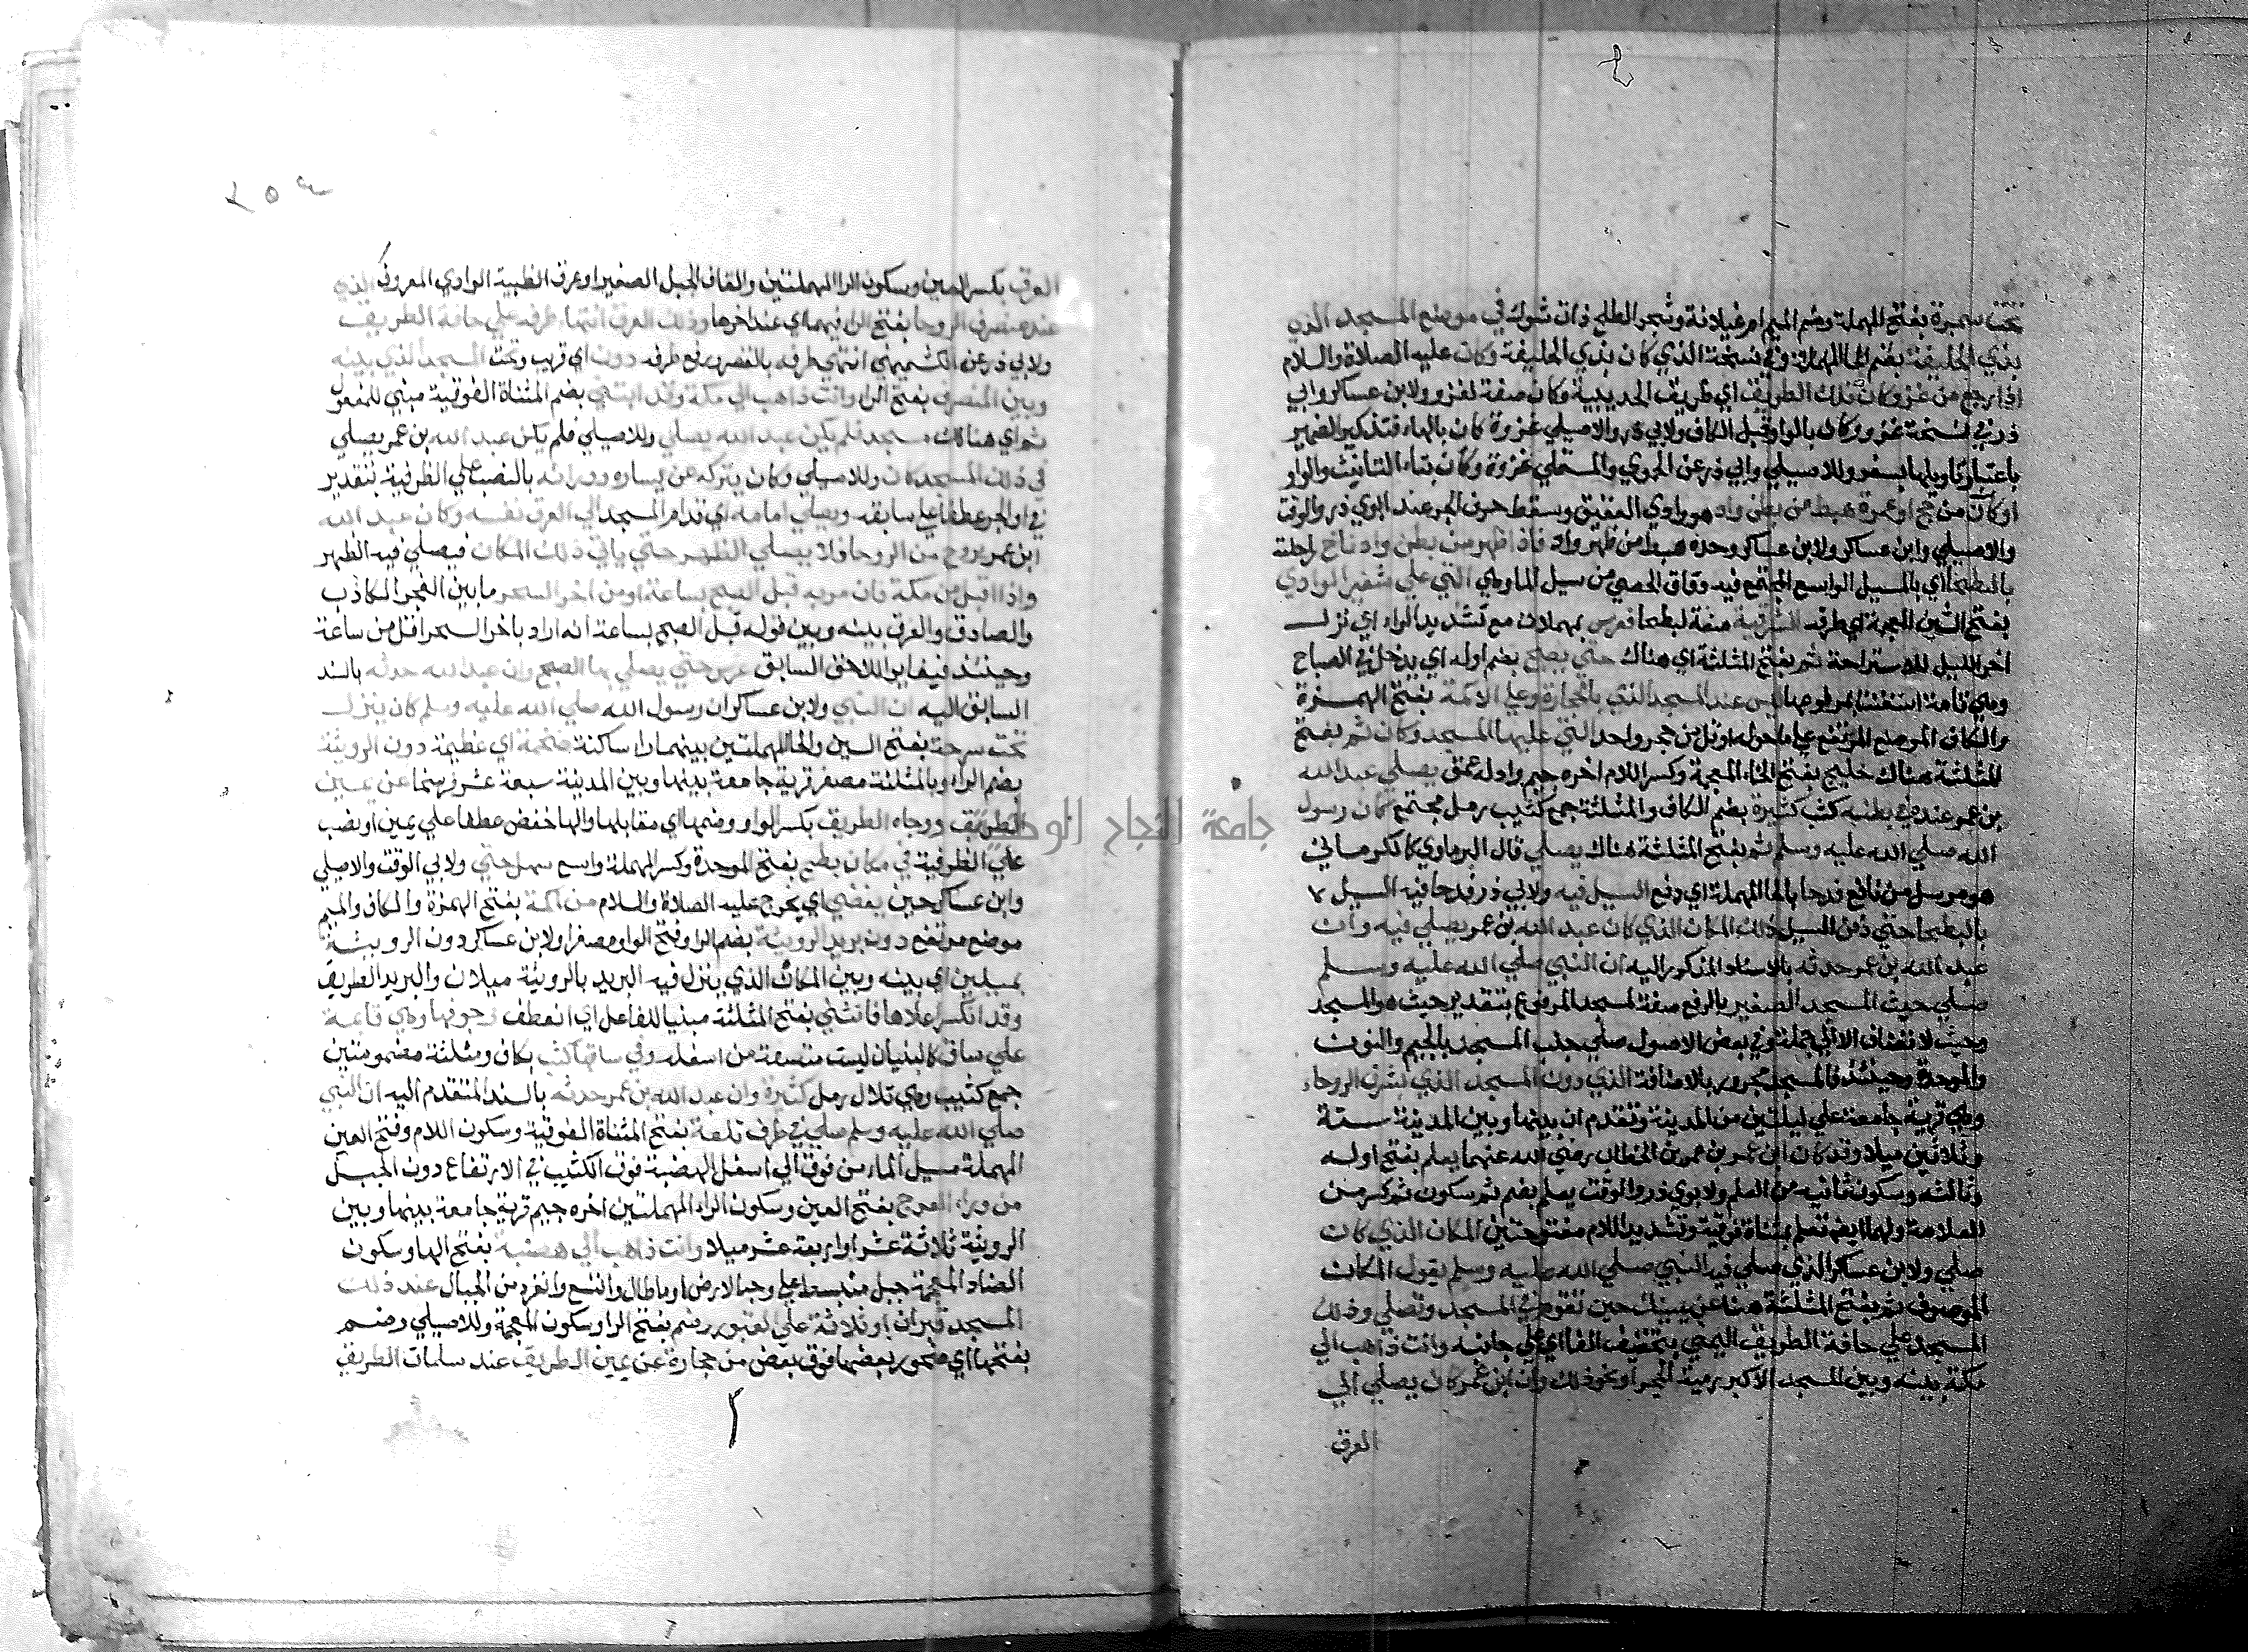 تحت سمرة بفتح المهملة وضم الميم ام غيلانة وشجر الطلح ذات شوك في موضع المسجد الذي
بذي الحليفة بضم الحا المهملة وفي نسخة الذي كان بذي الحليفة وكان عليه الصلاة والسلام
اذا رجع من غزو كان في تلك الطريق اي طريق الحديبية وكان صفة لغزو ولابن عساكر وابي
ذر في نسخة غزو وكان بالواو قبل الكاف ولابي ذر والاصيلي غزوة كان بالهاء فتذكير الضمير
باعتبار تاويلها بسفر وللاصيلي وابي ذر عن الحموي والمستملي غزوة وكان بتاء التانيث والواو
او كان من حج او عمرة هبط من بطن واد هو وادي العقيق وسقط حرف الجر عند ابوي ذر والوقت
والاصيلي وابن عساكر ولابن عساكر وحده هبط من ظهر واد فاذا ظهر من بطن واد اناخ راحلته
بالبطحا اي بالمسيل الواسع المجتمع فيه دقاق الحصى من سيل الما وهي التي علي شفير الوادي
بفتح الشين المعجمة اي طرفه الشرقية صفة لبطحا فعرس بمهملات مع تشديد الراء اي نزل
اخر الليل للاستراحة ثم بفتح المثلثة اي هناك حتي يصبح بضم اوله اي يدخل في الصباح
وهي تامة استغنت بمرفوعها ليس عند المسجد الذي بالحجارة وعلي الاكمة بفتح الهمزة
والكاف الموضع المرتفع علي ما حوله او تل من حجر واحد التي عليها المسجد وكان ثم بفتح
المثلثة هناك خليج بفتح الخاء المعجمة وكسر اللام اخره جيم واد له عمق يصلي عبد الله
بن عمر عنده في بطنه كثب كثيرة بضم الكاف والمثلثة جمع كثيب رمل مجتمع كان رسول
الله صلي الله عليه وسلم ثم بفتح المثلثة هناك يصلي قال البرماوي كالكرماني
هو مرسل من نافع فدحا بالحا المهملة اي دفع السيل فيه ولابي ذر فدحا فيه السيل
بالبطحا حتي دفن السيل ذلك المكان الذي كان عبد الله بن عمر يصلي فيه وان
عبد الله بن عمر حدثه بالاسناد المذكور اليه ان النبي صلي الله عليه وسلم
صلي حيث المسجد الصغير بالرفع صفة لمسجد المرفوع بتقدير حيث هو المسجد
وحيث لا تضاف الا الي جملة وفي بعض الاصول صلي جنب المسجد بالجيم والنون
والموحدة وحينئذ فالمسجد مجرور بالاضافة الذي دون المسجد الذي بشرف الروحاء
وهي قرية جامعة علي ليلتين من المدينة وتقدم ان بينها وبين المدينة ستة
وثلاثين ميلا وقد كان ابن عمر بن الخطاب رضي الله عنهما يعلم بفتح اوله
وثالثه وسكون ثانيه من العلم ولابوي ذر والوقت يعلم بضم ثم سكون ثم كسر من
العلامة ولهما ايضا تعلم بمثناة فوقية وتشديد اللام مفتوحتين المكان الذي كان
صلي ولابن عساكر الذي صلي فيه النبي صلي الله عليه وسلم يقول المكان
الموصوف ثم بفتح المثلثة هنا عن يمينك حين تقوم في المسجد وتصلي وذلك
المسجد علي حافة الطريق اليمني بتخفيف الفا اي علي جانبه وانت ذاهب الي
مكة بينه وبين المسجد الاكبر رمية الحجر او نحو ذلك وان ابن عمر كان يصلي الي
العرق
٢٥٣
العرق بكسر العين وسكون الرا المهملتين والقاف الجبل الصغير او عرق الظبية الوادي المعروف الذي
عند منصرف الروحا بفتح الرا فيهما اي عند اخرها وذلك العرق انتهاء طرفه علي حافة الطريق
ولابي ذر عن الكشميهني انتهي طرفه بالقصر ورفع طرفه دون اي قريب وتحت المسجد الذي بينه
وبين المنصرف بفتح الرا وانت ذاهب الي مكة وقد ابتني بضم المثناة الفوقية مبني للمفعول
ثم اي هنالك مسجد فلم يكن عبد الله يصلي وللاصيلي فلم يكن عبد الله بن عمر يصلي
في ذلك المسجد كان وللاصيلي وكان يتركه عن يساره ووراءه بالنصب علي الظرفية بتقدير
في او الجر عطفا علي سابقه ويصلي امامه اي قدام المسجد الي العرق نفسه وكان عبد الله
ابن عمر يروح من الروحا فلا يصلي الظهر حتي ياتي ذلك المكان فيصلي فيه الظهر
واذا اقبل من مكة فان مر به قبل الصبح بساعة او من اخر السحر ما بين الفجر الكاذب
والصادق والفرق بينه وبين قوله قبل الصبح بساعة انه اراد باخر السحر اقل من ساعة
وحينئذ فيغاير اللاحق السابق عرس حتي يصلي بها الصبح وان عبد الله حدثه بالسند
السابق اليه ان النبي ولابن عساكر ان رسول الله صلي الله عليه وسلم كان ينزل
تحت سرحة بفتح السين والحا المهملتين بينهما را ساكنة ضخمة اي عظيمة دون الرويثة
بضم الراء وبالمثلثة مصغر قرية جامعة بينها وبين المدينة سبعة عشر فرسخا عن يمين
الطريق ووجاه الطريق بكسر الواو وضمها اي مقابلها والها خفض عطفا علي يمين او نصب
علي الظرفية في مكان بطح بفتح الموحدة وكسر المهملة واسع سهل حتي ولابي الوقت والاصيلي
وابن عساكر حين يفضي اي يخرج عليه الصلاة والسلام من اكمة بفتح الهمزة والكاف والميم
موضع مرتفع دون بريد الرويثة بضم الرا وفتح الواو مصغرا ولابن عساكر دون الرويثة
بميلين اي بينه وبين المكان الذي ينزل فيه البريد بالرويثة ميلان والبريد الطريق
وقد انكسر اعلاها فانثني بفتح المثلثة مبنيا للفاعل اي انعطف في جوفها وهي قايمة
علي ساق كالبنيان ليست متسعة من اسفله وفي ساقها كثب بكاف ومثلثة مضمومتين
جمع كثيب وهي تلال رمل كثيرة وان عبد الله بن عمر حدثه بالسند المتقدم اليه ان النبي
صلي الله عليه وسلم صلي في طرف تلعة بفتح المثناة الفوقية وسكون اللام وفتح العين
المهملة مسيل الماء من فوق الي اسفل الهضبة فوق الكثيب في الارتفاع دون الجبل
من وراء العرج بفتح العين وسكون الراء المهملتين اخره جيم قرية جامعة بينها وبين
الرويثة ثلاثة عشر او اربعة عشر ميلا وانت ذاهب الي هضبة بفتح الها وسكون
الضاد المعجمة جبل منبسط علي وجه الارض او ما طال واتسع وانفرد من الجبال عند ذلك
المسجد قبران او ثلاثة علي القبور رضم بفتح الرا وسكون المعجمة وللاصيلي رضم
بفتحها اي صخور بعضها فوق بعض من حجارة عن يمين الطريق عند سلمات الطريق
جامعة النجاح الوط